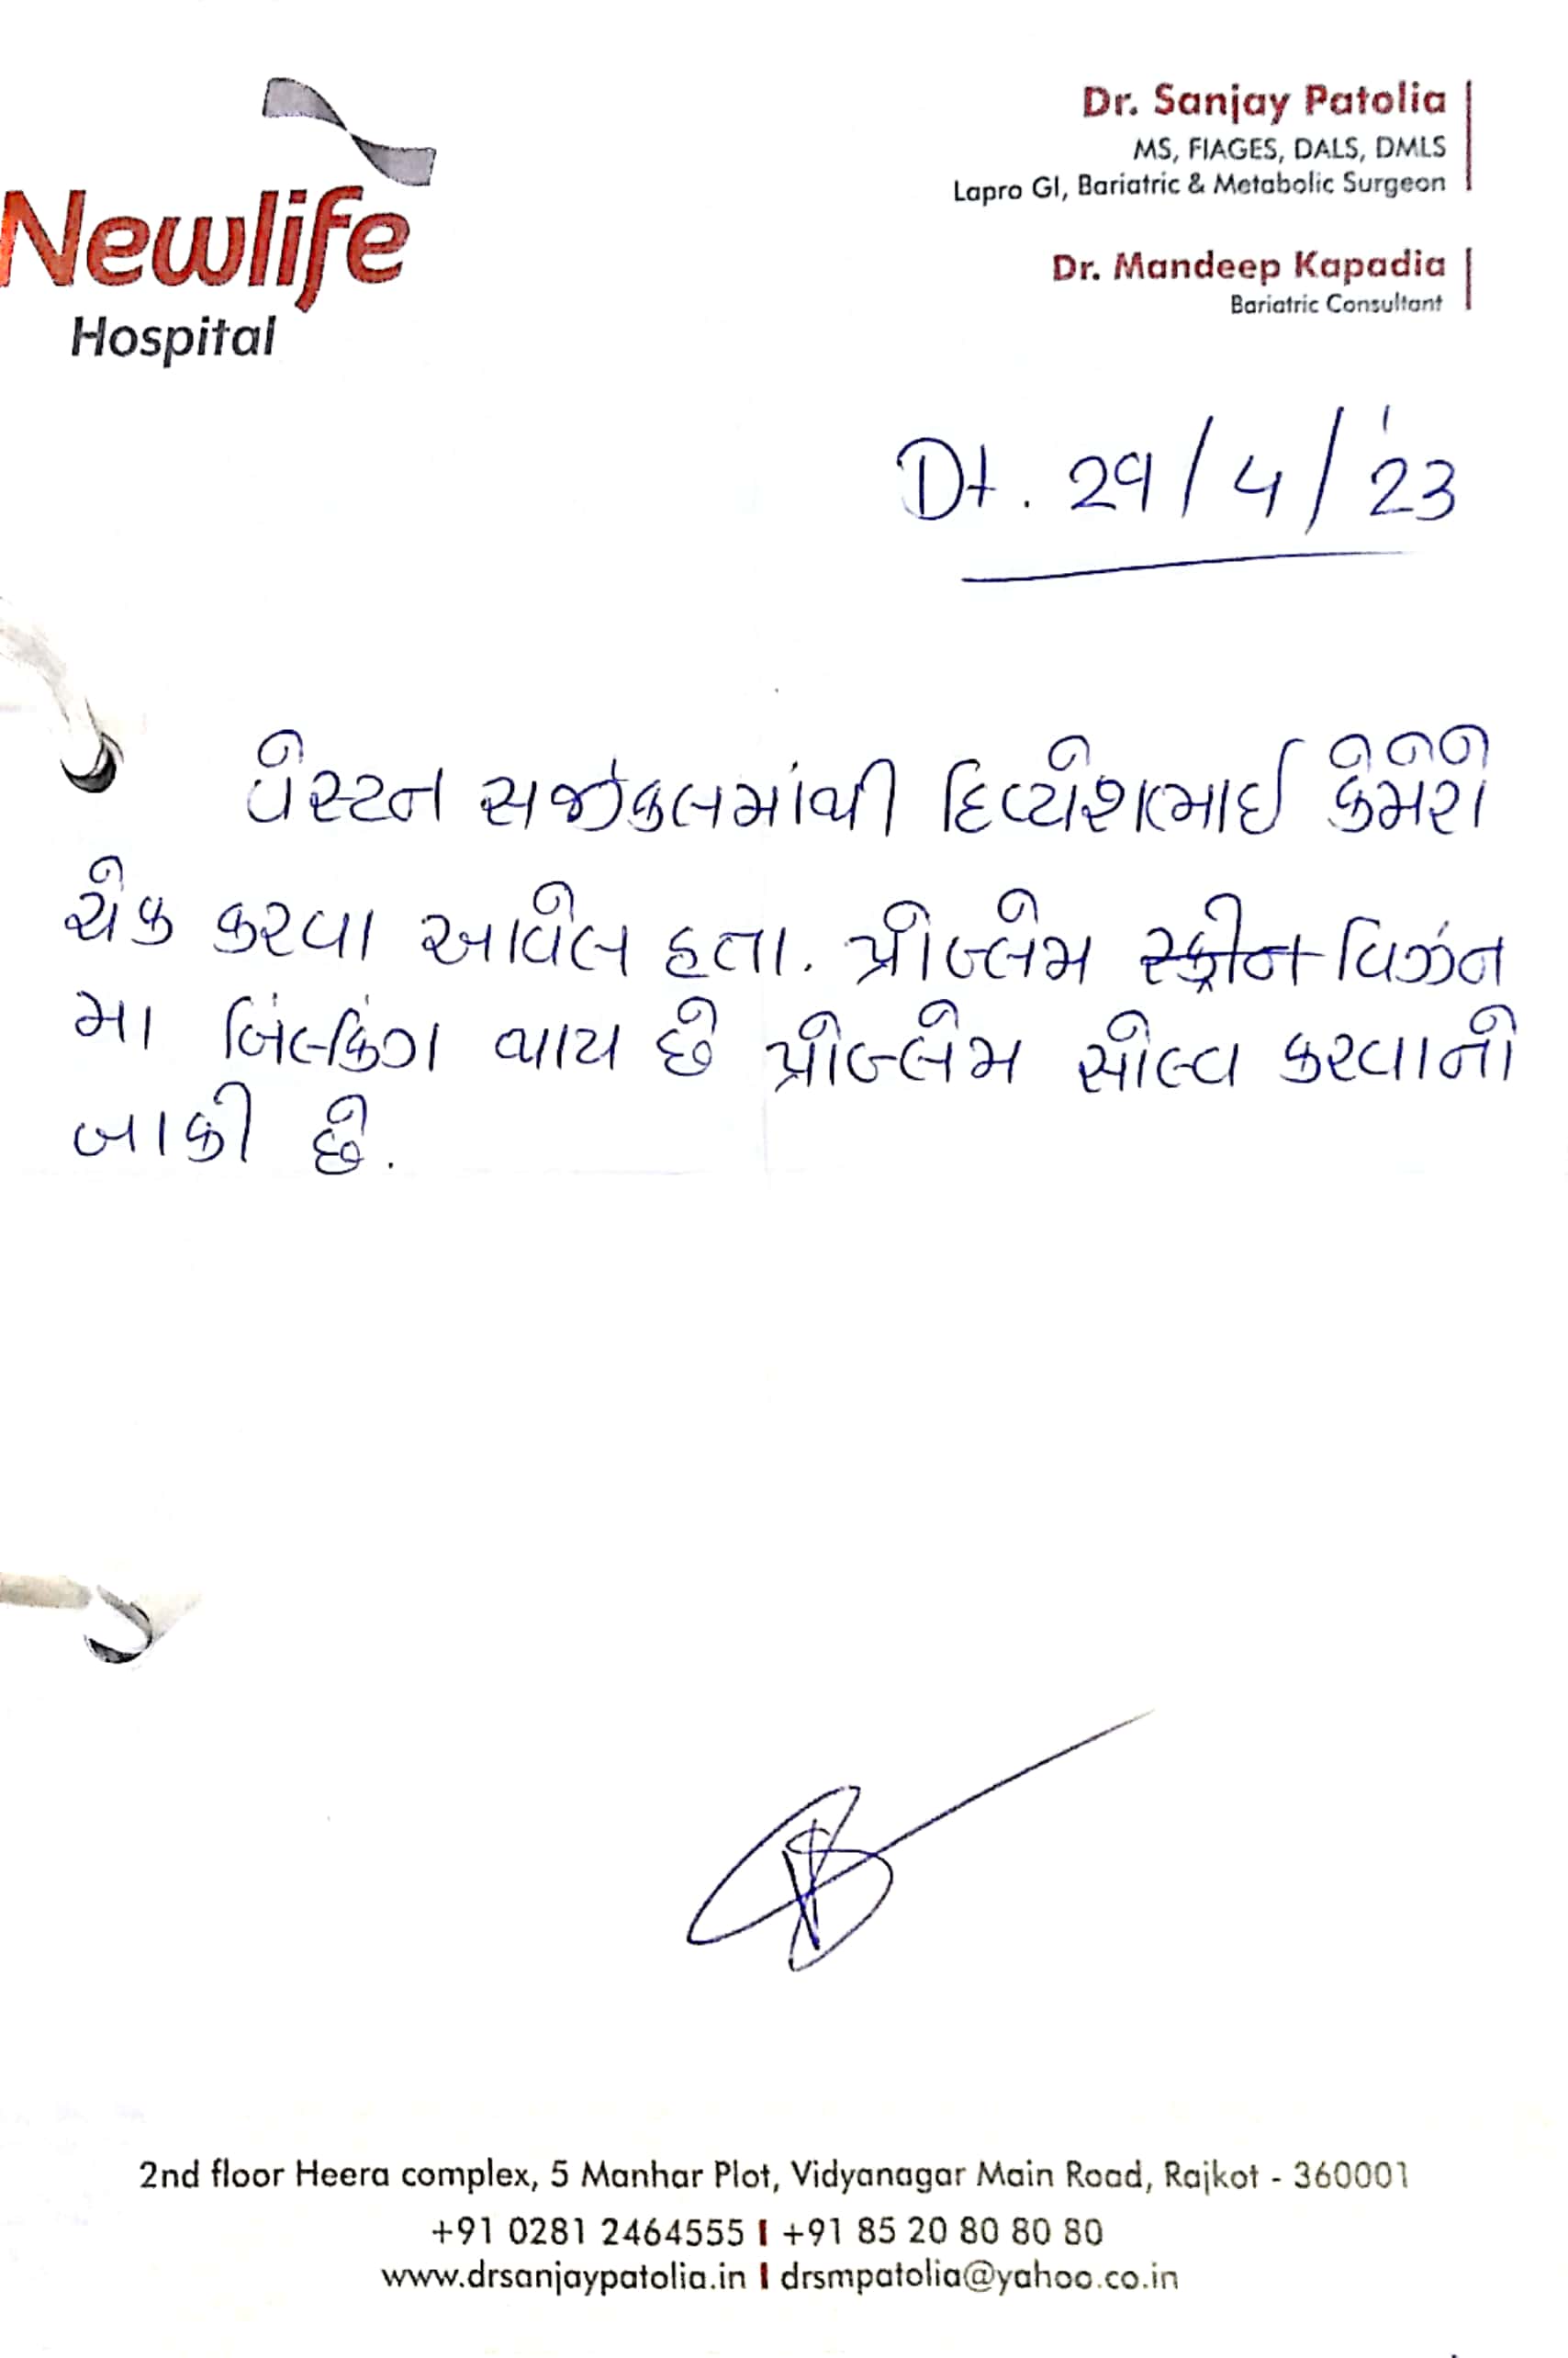 Newlife
Hospital
Dr. Sanjay Patolia
MS, FIAGES, DALS, DMLS
Lapro GI, Bariatric & Metabolic Surgeon
Dr. Mandeep Kapadia
Bariatric Consultant
Dt. 29/4/'23
વેસ્ટન સર્જીકલમાંથી દિવ્યેશભાઈ કેમેરો
ચેક કરવા આવેલ હતા. પ્રોબ્લેમ સ્ક્રીન વિઝન
મા બ્લિંકિંગ થાય છે પ્રોબ્લેમ સોલ્વ કરવાનો
બાકી છે.
2nd floor Heera complex, 5 Manhar Plot, Vidyanagar Main Road, Rajkot - 360001
+91 0281 2464555 | +91 85 20 80 80 80
www.drsanjaypatolia.in | drsmpatolia@yahoo.co.in